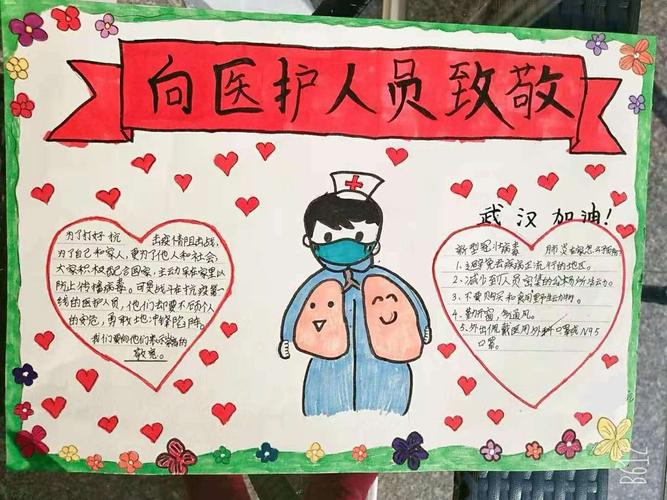 向医护人员致敬
武汉加油！
为了打好抗击疫情阻击战，
为了自己和家人，更为了他人和社会，
大家积极配合国家，主动呆在家里以
防止传播病毒。可是战斗在抗疫第一
线的医护人员，他们却要不顾个人
的安危，勇敢地冲锋陷阵。
我们要向他们表示崇高的
敬意。
新型冠状病毒 肺炎
1、避免去疾病正流行的地区。
2、减少到人员密集的公共场所活动。
3、不要购买和食用野生动物。
4、勤开窗，多通风。
5、外出佩戴医用外科口罩或N95
口罩。
B612